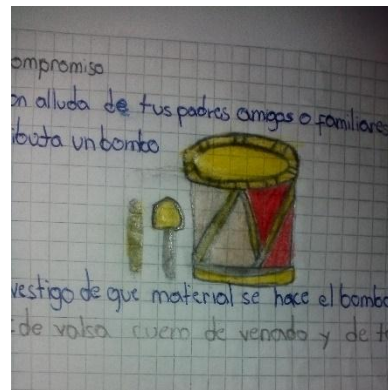 ompromiso
on alluda de tus padres amigos o familiare
ibuta un bombo
vestigo de que material se hace el bombo
de valsa cuero de venado y de t